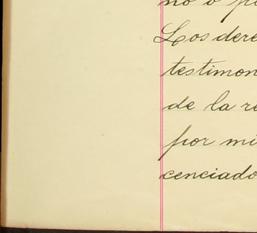 no o p
Los dere
testimon
de la re
por mi
cenciado